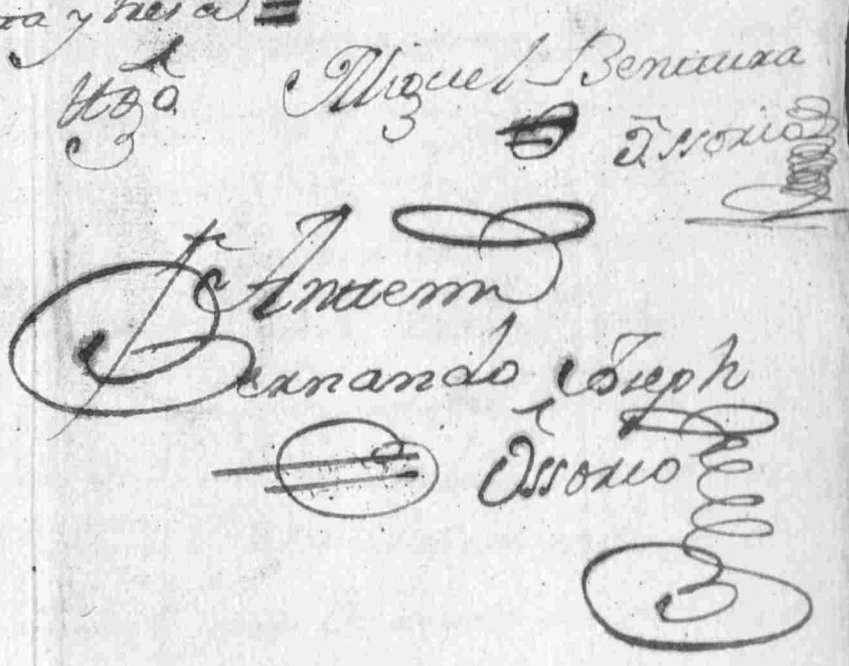 ta y tres a.l
Miguel Bentura
Ossorio
Antem
Fernando Joseph
Ossorio